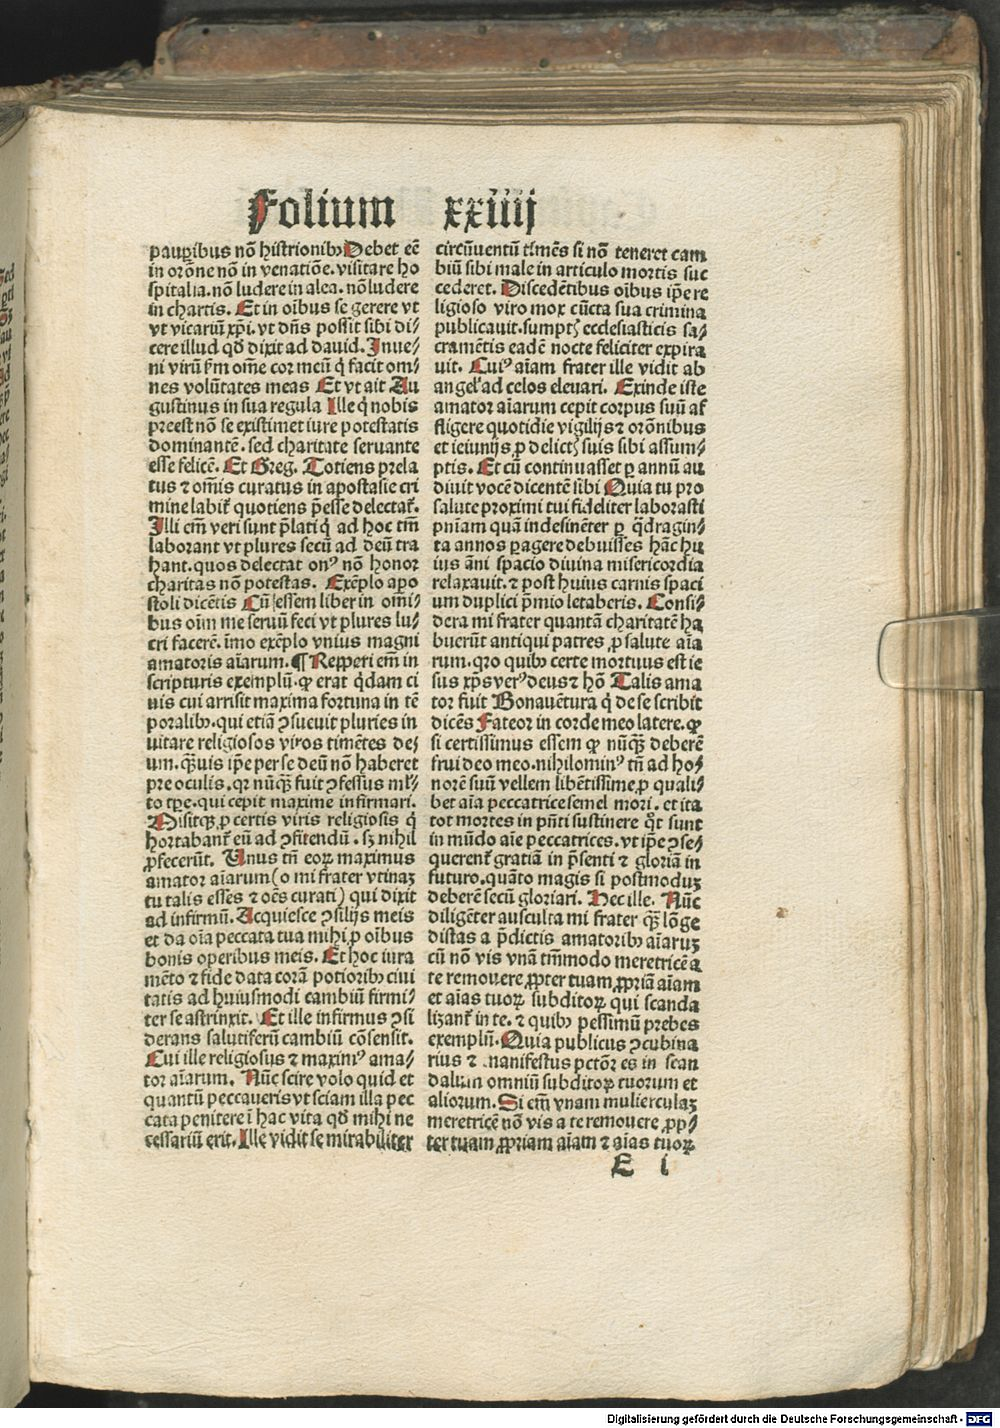 Folium xxiiij
pauꝑibus nõ histrionibꝫ Debet eē
in orõne nõ in venatiõe. visitare ho
spitalia. nõ ludere in alea. nõ ludere
in chartis. Et in oĩbus se gerere vt
vt vicariũ xp̃i. vt dñs possit sibi di⸗
cere illud qd̃ dixit ad dauid. Inue⸗
ni virũ ẜm om̃e cor meũ q̇ facit om⸗
nes volũtates meas Et vt ait Au
gustinus in sua regula Ille q̇ nobis
preest nõ se existimet iure potestatis
dominantẽ. sed charitate seruante
esse felicẽ. Et Greg. Totiens prela
tus ⁊ om̃is curatus in apostasie cri
mine labit᷑ quotiens p̃esse delectat᷑.
Illi em̃ veri sunt p̃lati q̇ ad hoc tm̃
laborant vt plures secũ ad deũ tra
hant. quos delectat onꝰ nõ honor
charitas nõ potestas. Exẽplo apo
stoli dicẽtis Cũ essem liber in om̃i⸗
bus oĩm me seruũ feci vt plures lu⸗
cri facerẽ. ĩmo exẽplo vnius magni
amatoris aĩarum. ¶ Repperi em̃ in
scripturis exemplũ. ꝙ erat q̇dam ci
uis cui arrisit maxima fortuna in tẽ
poralibꝫ. qui etiã ꝯsueuit pluries in
uitare religiosos viros timẽtes de⸗
um. quãuis ip̃e per se deũ nõ haberet
pre oculis. qꝛ nũq̃ fuit ꝯfessus ml̃⸗
to tp̃e. qui cepit maxime infirmari.
Misitqꝫ ꝓ certis viris religiosis q̇
hortabant᷑ eũ ad ꝯfitendũ. sꝫ nihil
ꝓfecerũt. Vnus tñ eoꝝ maximus
amator aĩarum (o mi frater vtinaꝫ
tu talis esses ⁊ oẽs curati) qui dixit
ad infirmũ. Acquiesce ꝯsilijs meis
et da oĩa peccata tua mihi ꝓ oĩbus
bonis operibus meis. Et hoc iura
mẽto ⁊ fide data corã potioribꝫ ciui
tatis ad huiusmodi cambiũ firmi⸗
ter se astrinxit. Et ille infirmus ꝯsi
derans salutiferũ cambiũ cõsensit.
Cui ille religiosus ⁊ maximꝰ ama⸗
tor aĩarum. Nũc scire volo quid et
quantũ peccaueris vt sciam illa pec
cata penitere ĩ hac vita qd̃ mihi ne
cessariũ erit. Ille vidit se mirabiliter
circũuentũ tĩmẽs si nõ teneret cam
biũ sibi male in articulo mortis suc
cederet. Discedẽtibus oĩbus ip̃e re
ligioso viro mox cũcta sua crimina
publicauit. sumptꝭ ecclesiasticis sa⸗
cramẽtis eadẽ nocte feliciter expira
uit. Cuiꝰ aĩam frater ille vidit ab
angel̃ ad celos eleuari. Exinde iste
amator aĩarum cepit corpus suũ af
fligere quotidie vigilijs ⁊ orõnibus
et ieiunijs ꝓ delictꝭ suis sibi assum⸗
ptis. Et cũ continuasset ꝑ annũ au
diuit vocẽ dicentẽ sibi Quia tu pro
salute proximi tui fideliter laborasti
pñiam quã indesinẽter ꝑ q̃dragin⸗
ta annos ꝑagere debuisses hãc hu
ius ãni spacio diuina misericordia
relaxauit. ⁊ post huius carnis spaci
um duplici p̃mio letaberis. Consi⸗
dera mi frater quantã charitatẽ ha
buerũt antiqui patres ꝓ salute aĩa
rum. ꝓ quibꝫ certe mortuus est ie
sus xp̃s verꝰ deus ⁊ hõ Talis ama
tor fuit Bonauẽtura q̇ de se scribit
dicẽs Fateor in corde meo latere. ꝙ
si certissimus essem ꝙ nũq̃ deberẽ
frui deo meo. nihilominꝰ tñ ad ho⸗
norẽ suũ vellem libẽtissime ꝓ quali⸗
bet aĩa peccatrice semel mori. et ita
tot mortes in pñti sustinere qͦt sunt
in mũdo aĩe peccatrices. vt ip̃e ꝯse⸗
querent᷑ gratiã in p̃senti ⁊ gloriã in
futuro. quãto magis si postmoduꝫ
deberẽ secũ gloriari. Hec ille. Nũc
diligẽter ausculta mi frater q̃ lõge
distas a p̃dictis amatoribꝫ aĩaruꝫ
cũ nõ vis vnã tm̃modo meretricẽ a
te remouere ꝓpter tuam ꝓpriã aĩam
et aĩas tuoꝝ subditoꝝ qui scanda
lizant᷑ in te. ⁊ quibꝫ pessimũ prebes
exemplũ. Quia publicus ꝯcubina
rius ⁊ manifestus pctõr es in scan
dalum omniũ subditoꝝ tuorum et
aliorum. Si em̃ vnam mulierculaꝫ
meretricẽ nõ vis a te remouere ꝓp⸗
ter tuam ꝓpriam aĩam ⁊ aĩas tuoꝝ
E i
Digitalisierung gefördert durch die Deutsche Forschungsgemeinschaft - DFG